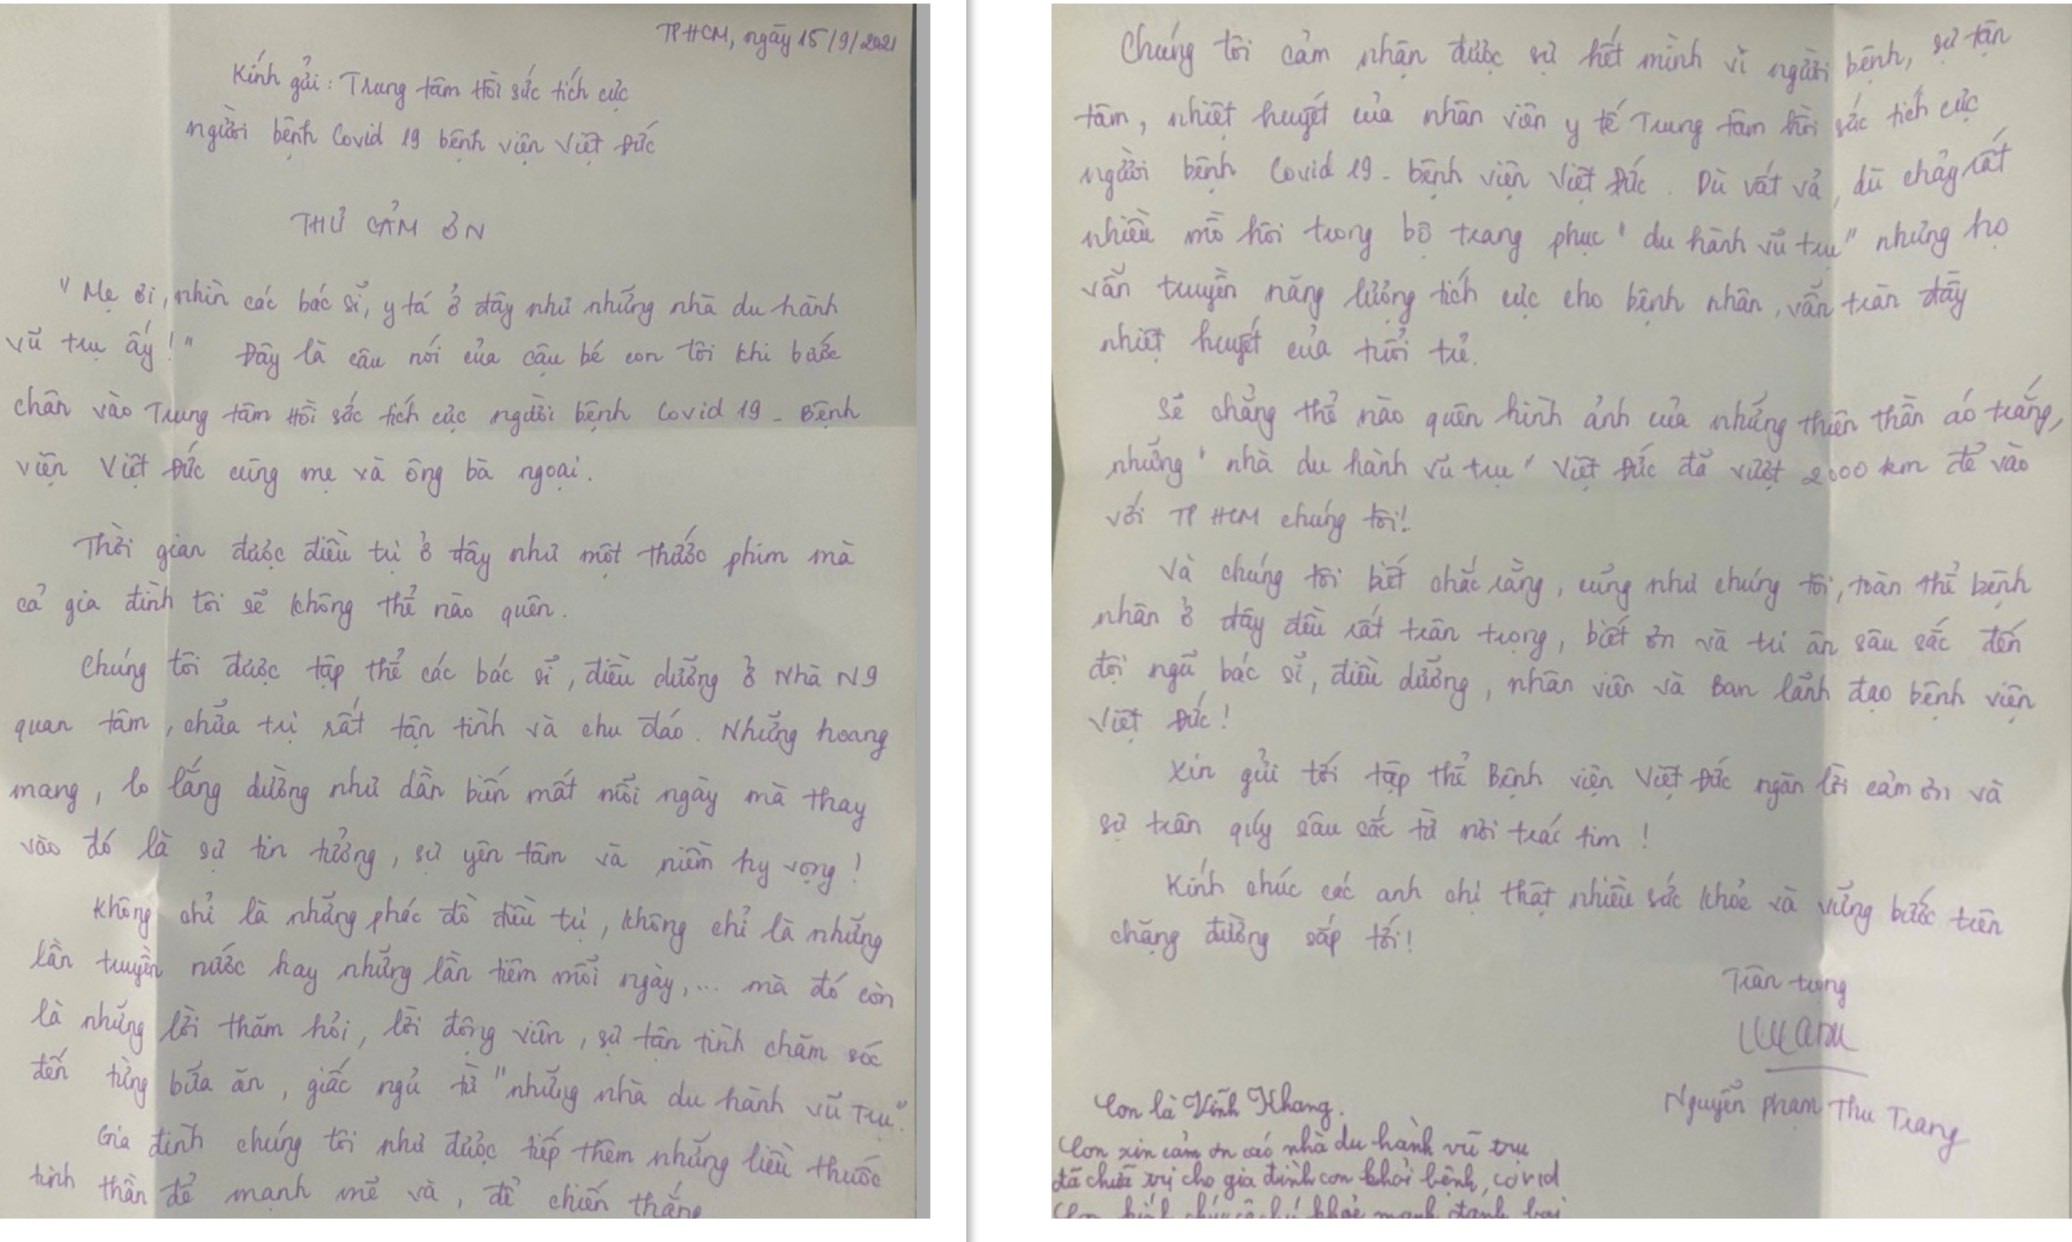 TP HCM, ngày 15/9/2021
Kính gửi: Trung tâm Hồi sức tích cực
người bệnh Covid 19 bệnh viện Việt Đức
THƯ CẢM ƠN
"Mẹ ơi, nhìn các bác sĩ, y tá ở đây như những nhà du hành
vũ trụ ấy!" Đây là câu nói của cậu bé con tôi khi bước
chân vào Trung tâm Hồi sức tích cực người bệnh Covid 19 - Bệnh
viện Việt Đức cùng mẹ và ông bà ngoại.
Thời gian được điều trị ở đây như một thước phim mà
cả gia đình tôi sẽ không thể nào quên.
Chúng tôi được tập thể các bác sĩ, điều dưỡng ở Nhà N9
quan tâm, chữa trị rất tận tình và chu đáo. Những hoang
mang, lo lắng dường như dần biến mất mỗi ngày mà thay
vào đó là sự tin tưởng, sự yên tâm và niềm hy vọng!
Không chỉ là những phác đồ điều trị, không chỉ là những
lần truyền nước hay những lần tiêm mỗi ngày,... mà đó còn
là những lời thăm hỏi, lời động viên, sự tận tình chăm sóc
đến từng bữa ăn, giấc ngủ từ "những nhà du hành vũ trụ".
Gia đình chúng tôi như được tiếp thêm những liều thuốc
tinh thần để mạnh mẽ và, để chiến thắng
Chúng tôi cảm nhận được sự hết mình vì người bệnh, sự tận
tâm, nhiệt huyết của nhân viên y tế Trung tâm hồi sức tích cực
người bệnh Covid 19 - bệnh viện Việt Đức. Dù vất vả, dù chảy rất
nhiều mồ hôi trong bộ trang phục "du hành vũ trụ" nhưng họ
vẫn truyền năng lượng tích cực cho bệnh nhân, vẫn tràn đầy
nhiệt huyết của tuổi trẻ.
Sẽ chẳng thể nào quên hình ảnh của những thiên thần áo trắng,
những "nhà du hành vũ trụ" Việt Đức đã vượt 2000 km để vào
với TP HCM chúng tôi!
Và chúng tôi biết chắc rằng, cũng như chúng tôi, toàn thể bệnh
nhân ở đây đều rất trân trọng, biết ơn và tri ân sâu sắc đến
đội ngũ bác sĩ, điều dưỡng, nhân viên và Ban lãnh đạo bệnh viện
Việt Đức!
Xin gửi tới tập thể Bệnh viện Việt Đức ngàn lời cảm ơn và
sự trân quý sâu sắc từ nơi trái tim!
Kính chúc các anh chị thật nhiều sức khỏe và vững bước trên
chặng đường sắp tới!
Trân trọng
Nguyễn Phạm Thu Trang
Con là Vĩnh Khang.
Con xin cảm ơn các nhà du hành vũ trụ
đã chữa trị cho gia đình con khỏi bệnh, covid
Con kính chúc khỏe mạnh đánh bại